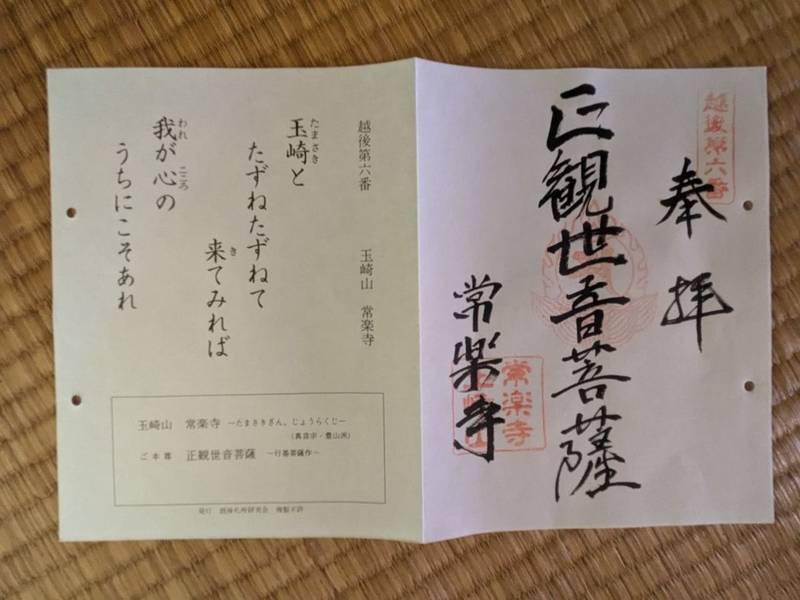 越後第六番
奉拝
正観世音菩薩
常楽寺
常楽寺
越後第六番 玉崎山 常楽寺
玉崎と
たまさき
たずねたずねて
来てみれば
き
我が心の
われ こころ
うちにこそあれ
玉崎山 常楽寺 ―たまさきざん、じょうらくじ―
(真言宗・豊山派)
ご本尊 正観世音菩薩 ～行基菩薩作～
発行 越後札所研究会 複製不許